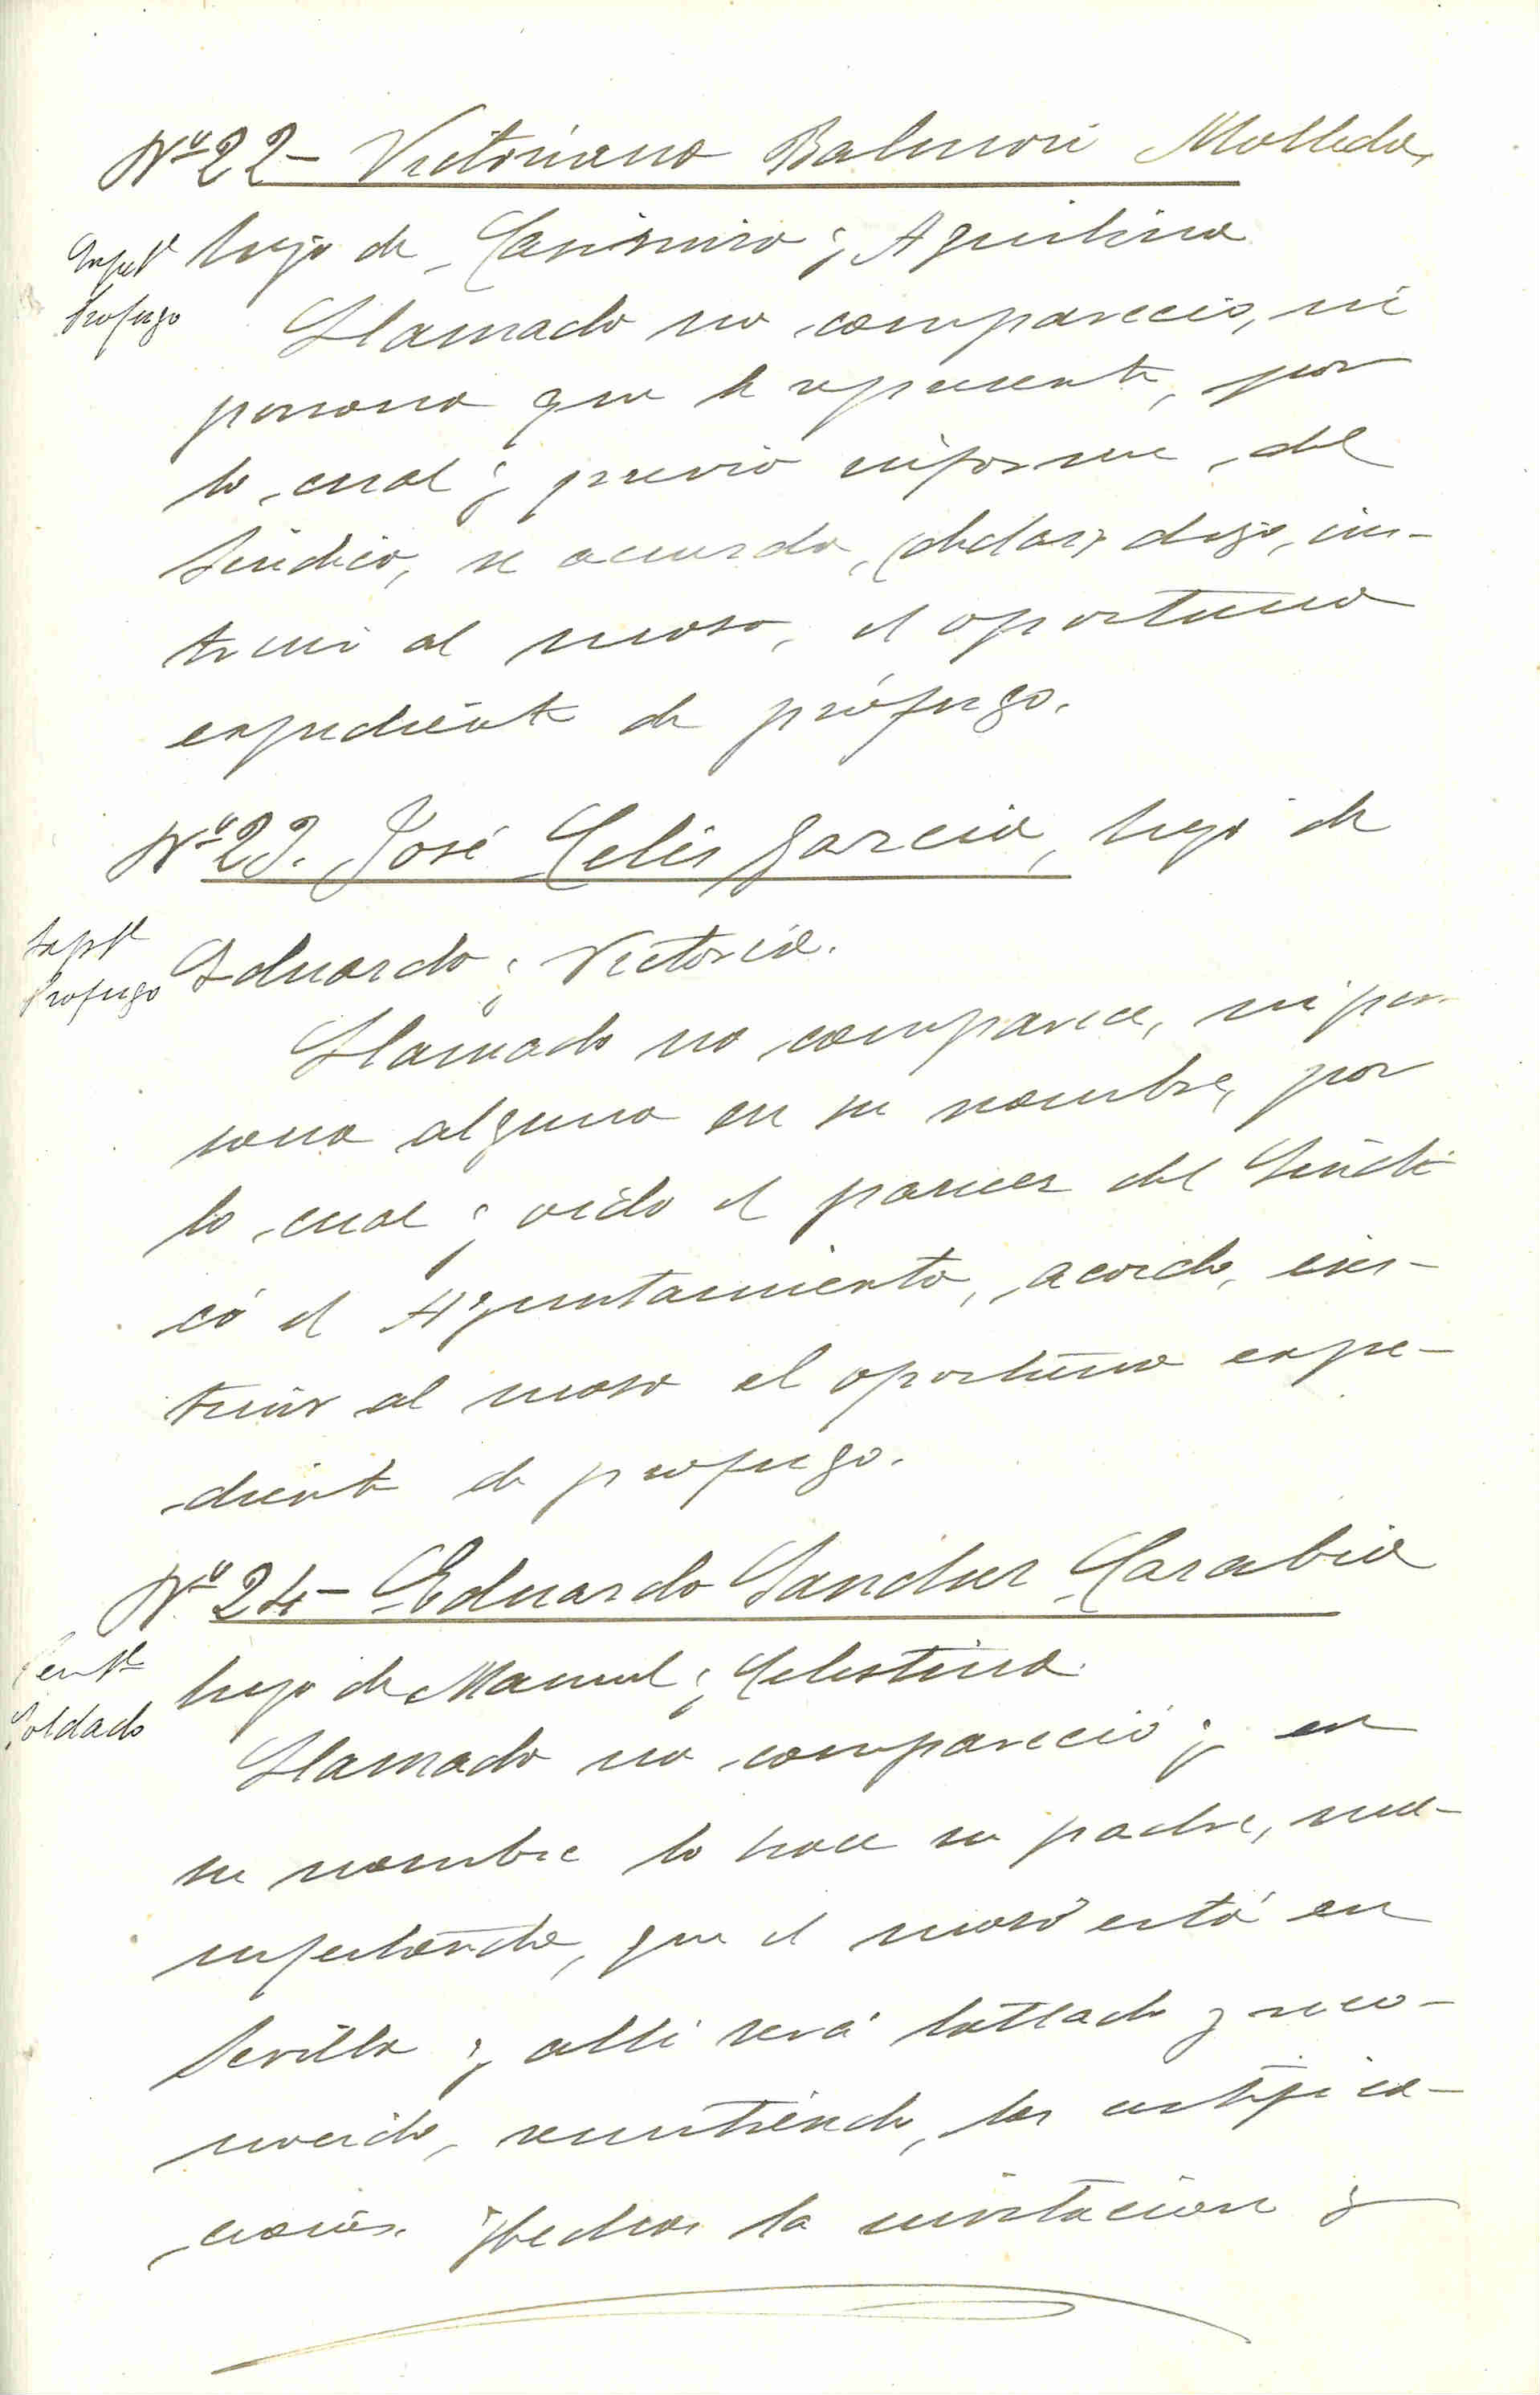 Nº 22- Victoriano Balmori Molleda,
hijo de Casimiro y Aquilina
Prófugo
Llamado no compareció, ni
persona que le represente, por
lo cual y previo informe del
Síndico, se acuerda, (declarar digo, ins-
truir al mozo, el oportuno
expediente de prófugo.
Nº 23. José Celis García, hijo de
Eduardo y Victoria.
Profugo
Llamado no comparece, ni per-
sona alguna en su nombre, por
lo cual y oido el parecer del Síndi-
co el Ayuntamiento, acordo, ins-
truir al mozo el oportuno expe-
diente de profugo.
Nº 24- Eduardo Sanchez Sarabia
hijo de Manuel y Celestina.
Soldado
Llamado no compareció y en
su nombre lo hace su padre, ma-
nifestando, que el mozo está en
Sevilla y alli será tallado y reco-
nocido, remitiendo, las certifica-
ciones. Hecha la invitacion y